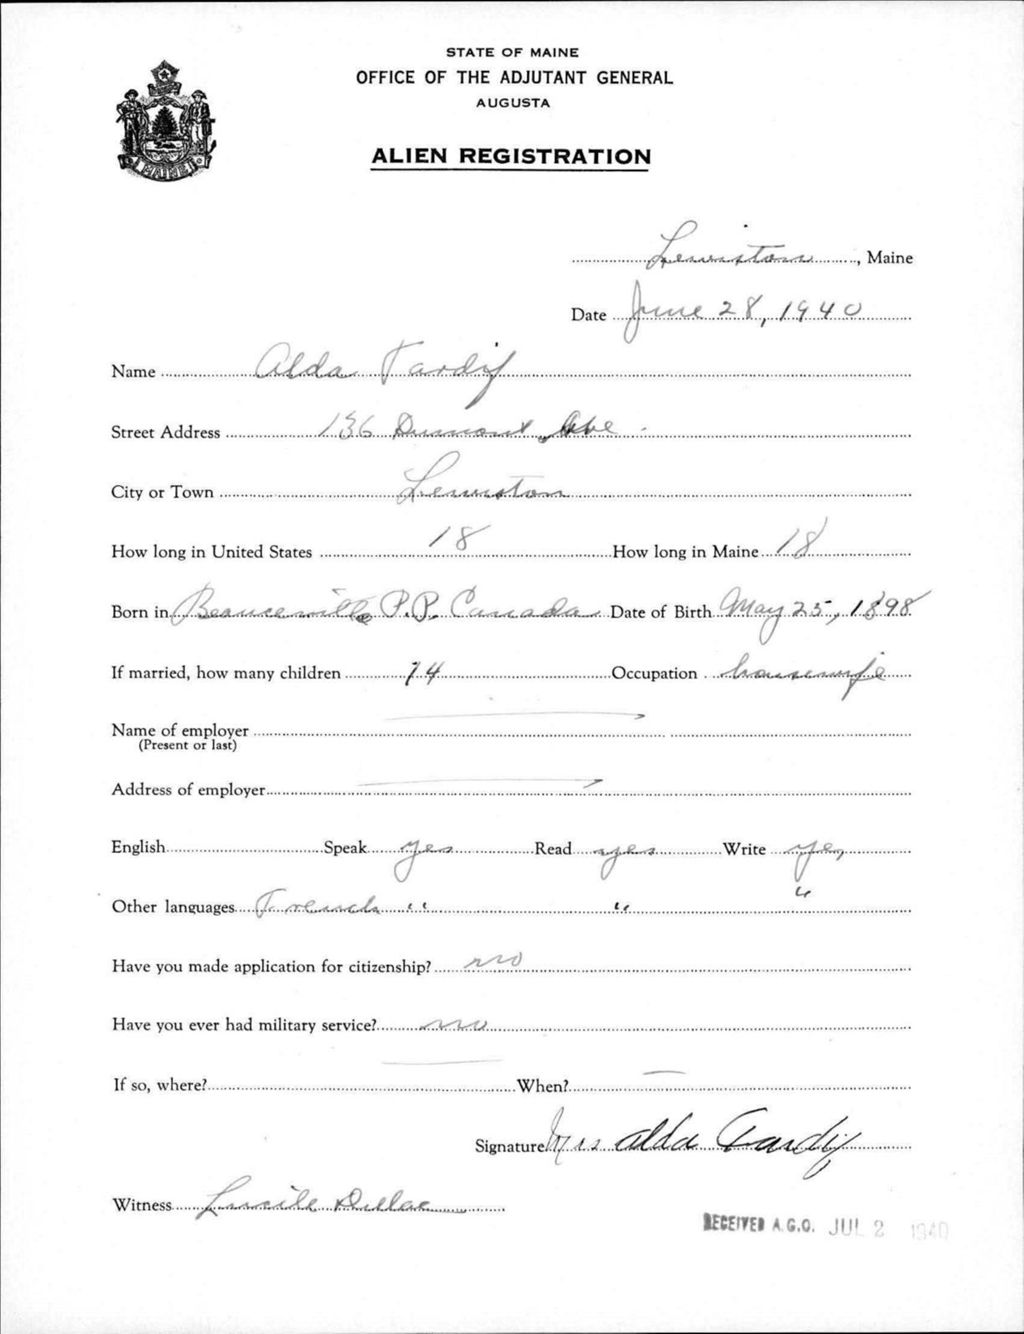 STATE OF MAINE
OFFICE OF THE ADJUTANT GENERAL
AUGUSTA
MAINE
ALIEN REGISTRATION
Lewiston, Maine
Date June 28, 1940
Name Alda Tardif
Street Address 136 Dumont Ave
City or Town Lewiston
How long in United States 18 How long in Maine 18
Born in Beauceville P.P. Canada Date of Birth May 25, 1898
If married, how many children 14 Occupation housewife
Name of employer
(Present or last)
Address of employer
English Speak yes Read yes Write yes
Other languages French " " "
Have you made application for citizenship? no
Have you ever had military service? no
If so, where? When?
Signature Mrs Alda Tardif
Witness Lucile
RECEIVED A.G.O. JUL 2 1940